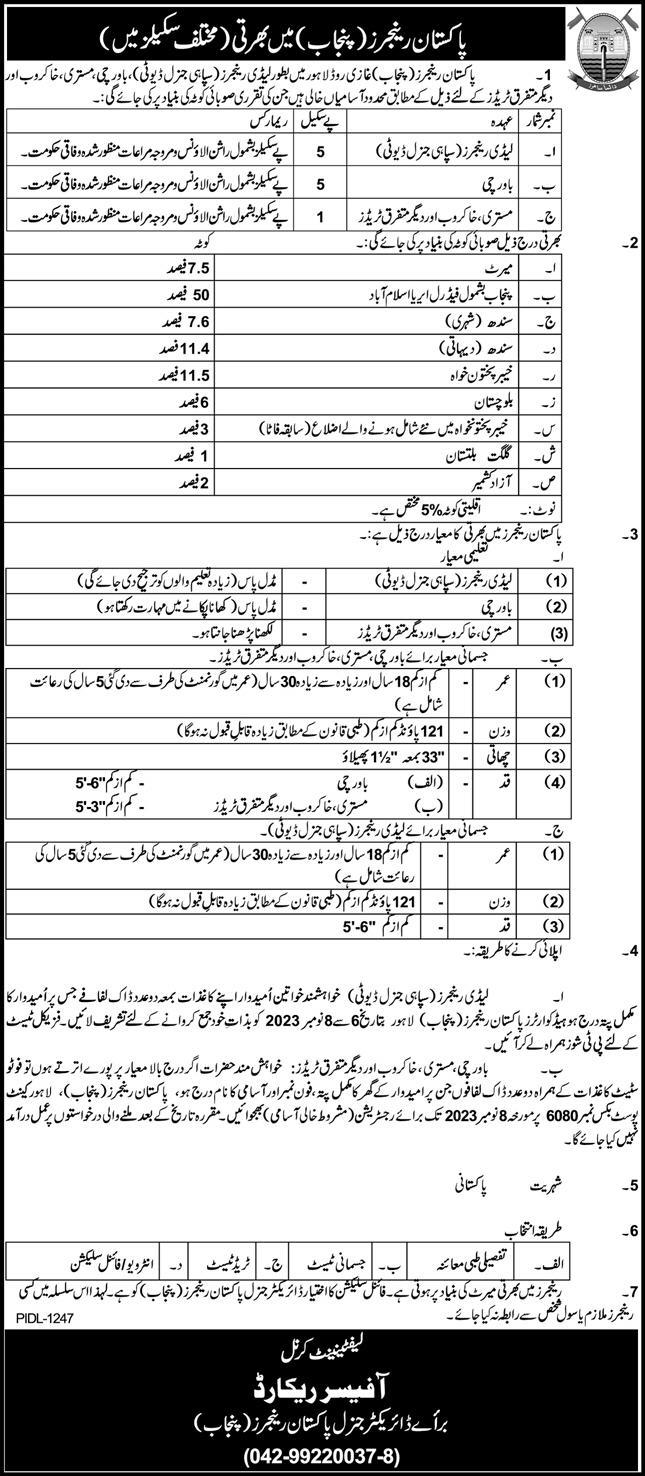 پاکستان رینجرز (پنجاب) میں بھرتی (مختلف سکیلز میں)
1۔ پاکستان رینجرز (پنجاب) غازی روڈ لاہور میں بطور لیڈی رینجرز (سپاہی جنرل ڈیوٹی)، باورچی، مستری، خاکروب اور
دیگر متفرق ٹریڈز کے لئے ذیل کے مطابق محدود آسامیاں خالی ہیں جن کی تقرری صوبائی کوٹہ کی بنیاد پر کی جائے گی:۔
نمبر شمار عہدہ پے سکیل ریمارکس
ا۔ لیڈی رینجرز (سپاہی جنرل ڈیوٹی) 5 پے سکیلز بشمول راشن الاؤنس و مروجہ مراعات منظور شدہ وفاقی حکومت۔
ب۔ باورچی 5 پے سکیلز بشمول راشن الاؤنس و مروجہ مراعات منظور شدہ وفاقی حکومت۔
ج۔ مستری، خاکروب اور دیگر متفرق ٹریڈز 1 پے سکیلز بشمول راشن الاؤنس و مروجہ مراعات منظور شدہ وفاقی حکومت۔
2۔ بھرتی درج ذیل صوبائی کوٹہ کی بنیاد پر کی جائے گی:۔ کوٹہ
ا۔ میرٹ 7.5 فیصد
ب۔ پنجاب بشمول فیڈرل ایریا اسلام آباد 50 فیصد
ج۔ سندھ (شہری) 7.6 فیصد
د۔ سندھ (دیہاتی) 11.4 فصد
ر۔ خیبر پختون خواہ 11.5 فصد
ز۔ بلوچستان 6 فیصد
س۔ خیبر پختونخواہ میں نئے شامل ہونے والے اضلاع (سابقہ فاٹا) 3 فیصد
ش۔ گلگت بلتستان 1 فیصد
ص۔ آزاد کشمیر 2 فیصد
نوٹ:۔ اقلیتی کوٹہ 5% مختص ہے۔
3۔ پاکستان رینجرز میں بھرتی کا معیار درج ذیل ہے:۔
ا۔ تعلیمی معیار
(1) لیڈی رینجرز (سپاہی جنرل ڈیوٹی) - مڈل پاس (زیادہ تعلیم والوں کو ترجیح دی جائے گی)
(2) باورچی - مڈل پاس (کھانا پکانے میں مہارت رکھتا ہو)
(3) مستری، خاکروب اور دیگر متفرق ٹریڈز - لکھنا پڑھنا جانتا ہو۔
ب۔ جسمانی معیار برائے باورچی، مستری، خاکروب اور دیگر متفرق ٹریڈز۔
(1) عمر - کم از کم 18 سال اور زیادہ سے زیادہ 30 سال (عمر میں گورنمنٹ کی طرف سے دی گئی 5 سال کی رعائت
شامل ہے)
(2) وزن - 121 پاؤنڈ کم از کم (طبی قانون کے مطابق زیادہ قابل قبول نہ ہوگا)
(3) چھاتی - 33" بمعہ 1½" پھیلاؤ
(4) قد - (الف) باورچی - کم از کم 5'-6"
(ب) مستری، خاکروب اور دیگر متفرق ٹریڈز - کم از کم 5'-3"
ج۔ جسمانی معیار برائے لیڈی رینجرز (سپاہی جنرل ڈیوٹی)۔
(1) عمر - کم از کم 18 سال اور زیادہ سے زیادہ 30 سال (عمر میں گورنمنٹ کی طرف سے دی گئی 5 سال کی
رعائت شامل ہے)
(2) وزن - 121 پاؤنڈ کم از کم (طبی قانون کے مطابق زیادہ قابل قبول نہ ہوگا)
(3) قد - کم از کم 5'-6"
4۔ اپلائی کرنے کا طریقہ:۔
ا۔ لیڈی رینجرز (سپاہی جنرل ڈیوٹی) خواہشمند خواتین اُمیدوار اپنے کاغذات بمعہ دو عدد ڈاک لفافے جس پر اُمیدوار کا
مکمل پتہ درج ہو ہیڈ کوارٹرز پاکستان رینجرز (پنجاب) لاہور بتاریخ 6 سے 8 نومبر 2023 کو بذات خود جمع کروانے کے لئے تشریف لائیں۔ فزیکل ٹیسٹ
کے لئے پی ٹی شوز ہمراہ لے کر آئیں۔
ب۔ باورچی، مستری، خاکروب اور دیگر متفرق ٹریڈز: خواہش مند حضرات اگر درج بالا معیار پر پورے اترتے ہوں تو فوٹو
سٹیٹ کاغذات کے ہمراہ دو عدد ڈاک لفافوں جن پر امیدوار کے گھر کا مکمل پتہ، فون نمبر اور آسامی کا نام درج ہو، پاکستان رینجرز (پنجاب)، لاہور کینٹ
پوسٹ بکس نمبر 6080 پر مورخہ 8 نومبر 2023 تک برائے رجسٹریشن (مشروط خالی آسامی) بھجوائیں۔ مقررہ تاریخ کے بعد ملنے والی درخواستوں پر عمل درآمد
نہیں کیا جائے گا۔
5۔ شہریت پاکستانی
6۔ طریقہ انتخاب
الف۔ تفصیلی طبی معائنہ ب۔ جسمانی ٹیسٹ ج۔ ٹریڈ ٹیسٹ د۔ انٹرویو/فائنل سلیکشن
7۔ رینجرز میں بھرتی میرٹ کی بنیاد پر ہوتی ہے۔ فائنل سلیکشن کا اختیار ڈائریکٹر جنرل پاکستان رینجرز (پنجاب) کو ہے۔ لہذا اس سلسلہ میں کسی
رینجرز ملازم یا سول شخص سے رابطہ نہ کیا جائے۔
PIDL-1247
لیفٹیننٹ کرنل
آفیسر ریکارڈ
برائے ڈائریکٹر جنرل پاکستان رینجرز (پنجاب)
(042-99220037-8)